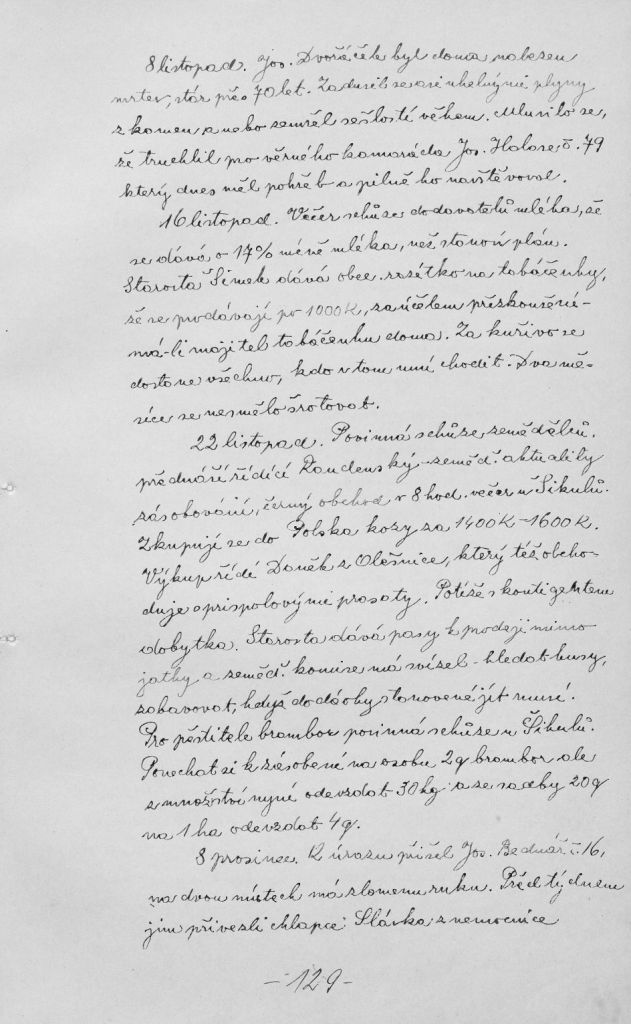 8 listopad. Jos. Dvořáček byl doma nalezen
mrtev, stár přes 70 let. Zadusil se asi uhelnými plyny
z kamen a nebo zemřel sešlostí věkem. Mluvilo se,
že truchlil pro věrného kamaráda Jos. Halase, č. 79
který dnes měl pohřeb a pilně ho navštěvoval.
16 listopad. Večer schůze dodavatelů mléka, že
se dává o 17% méně mléka, než stanoví plán.
Starosta Šimek dává obce. razítko na tabáčenky,
že se prodávají po 1000 K, za účelem přezkoušení-
má-li majitel tabáčenku doma. Za kuřivo se
dostane všechno, kdo v tom umí chodit. Dva mě-
síce se nesmělo šrotovat.
22 listopad. Povinná schůze zemědělců.
přednáší řídící Raudenský-zeměd. aktuality
zásobování, černý obchod v 8 hod. večer u Šikulů.
Zkupují se do Polska kozy za 1400 K - 1600 K.
Výkup řídí Daněk z Olešnice, který též obcho-
duje s prispolovými prasaty. Potíže s kontigentem
dobytka. Starosta dává pasy k prodeji mimo
jatky a zeměd. komise má svízel - hledat kusy,
zabavovat, když do dávky stanovené jít musí.
Pro pěstitele brambor povinná schůze u Šikulů.
Ponechat si k zásobení na osobu 2q brambor ale
z množství nyní odevzdat 30 kg a ze sadby 20 q
na 1 ha odevzdat 4 q.
8 prosinec. K úrazu přišel Jos. Bednář č. 16,
na dvou místech má zlomenu ruku. Před týdnem
jim přivezli chlapce Slávka z nemocnice
- 129 -